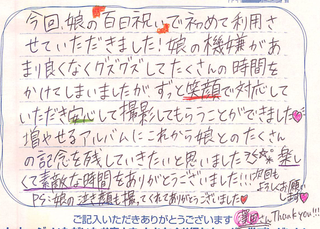 今回、娘の百日祝いで初めて利用さ
せていただきました！娘の機嫌があ
まり良くなくグズグズしてたくさんの時間を
かけてしまいましたが、ずっと笑顔で対応して
いただき安心して撮影してもらうことができました
増やせるアルバムにこれから娘とのたくさん
の記念を残していきたいと思いました 楽し
くて素敵な時間をありがとうございました!!!次回も
よろしくお願いします
PS:娘の泣き顔も撮ってくれてありがとうございました
ご記入いただきありがとうございます
さん Thank you!!!